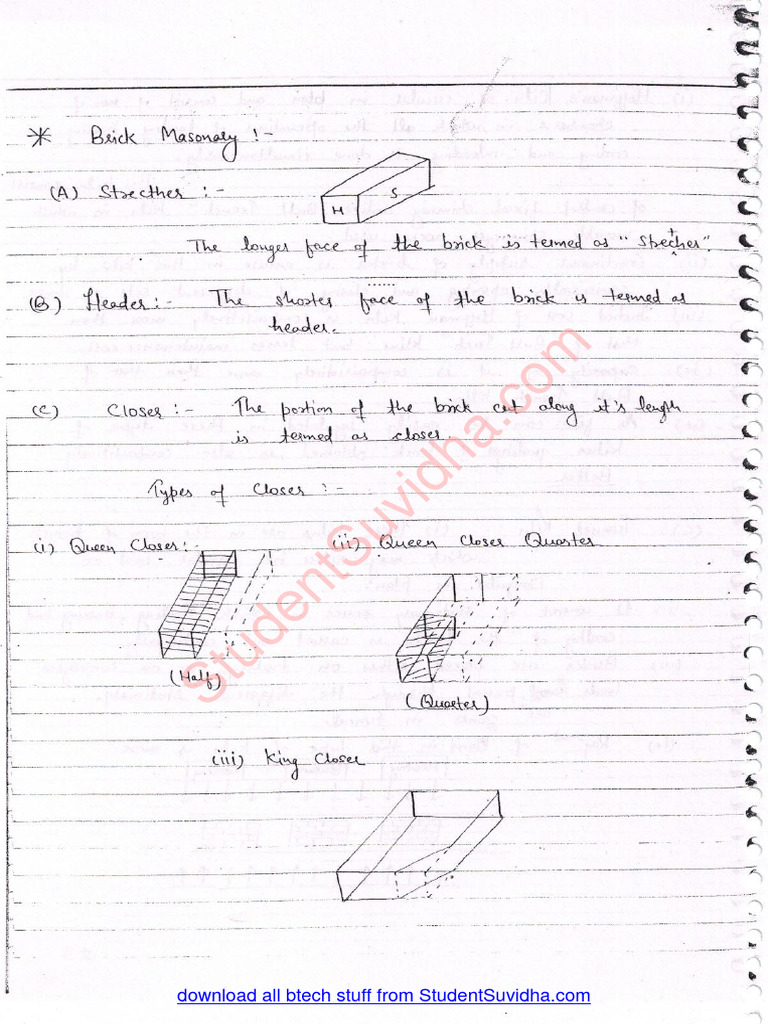 * Brick Masonary :-
(A) Strecther :-
H S
The longer face of the brick is termed as "Stretcher"
(B) Header :- The shorter face of the brick is termed as
header.
(C) Closer :- The portion of the brick cut along it's length
is termed as closer.
Types of Closer :-
(i) Queen Closer: (ii) Queen Closer Quarter
(Half)
(Quarter)
(iii) King Closer
StudentSuvidha.com
download all btech stuff from StudentSuvidha.com